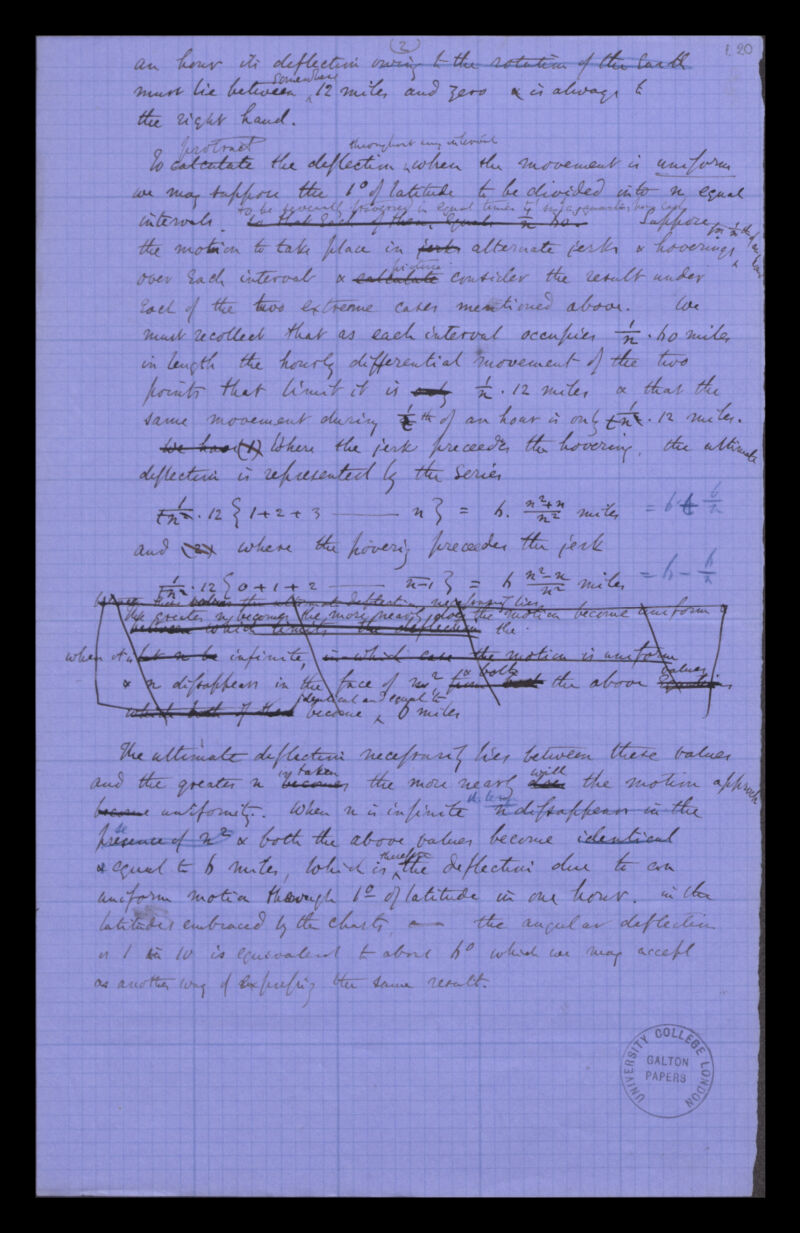 (2)
1. 20
an hour its deflection owing to the rotation of the Earth
somewhere
must lie between 12 miles and zero & is always to
the right hand.
protract throughout any interval
To calculate the deflection when the movement is uniform
we may suppose the 1° of latitude to be divided into n equal
intervals. so that each of them equals 1/n 60. Suppose
for 1/n th of an hour
the motion to take place in jerks alternate jerks & hoverings
picture
over each interval & calculate consider the result under
each of the two extreme cases mentioned above. We
must recollect that as each interval occupies 1/n . 60 miles
in length the hourly differential movement of the two
points that limit it is only 1/n . 12 miles & that the
same movement during 1/n th of an hour is only 1/n² . 12 miles.
We have (1) Where the jerk preceedes the hovering, the ultimate
deflection is represented by the series
1/n² . 12 { 1+2+3 —— n } = 6. n²+n/n² miles = 6 + 6/n
and (2) where the hoverig preceedes the jerk
1/n² . 12 { 0+1+2 —— n-1 } = 6 n²-n/n² miles = 6 - 6/n
the greater n becomes the more nearly does the motion become uniform
between which limits the deflection the
when n but n be infinite, in which case the motion is uniform
& both values
& n disappears in the face of n² the above equations
identical and equal to
which both of these become 6 miles
The ultimate deflection necessarily lies between these values
is taken will
and the greater n becomes the more nearly does the motion approach
become uniformity. When n is infinite n disappears in the
presence of n² & both the above values become identical
therefore
& equal to 6 miles, which is the deflection due to an
uniform motion through 1° of latitude in one hour. in the
latitudes embraced by the charts, the angular deflection
of 1 in 10 is equivalent to about 6° which we may accept
as another way of expressing the same result.
UNIVERSITY COLLEGE LONDON
GALTON
PAPERS